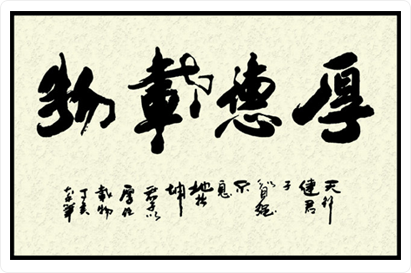 厚德載物
天行
健君
子
以自強
不
息
地势
坤
君子以
厚德
載物
丁亥